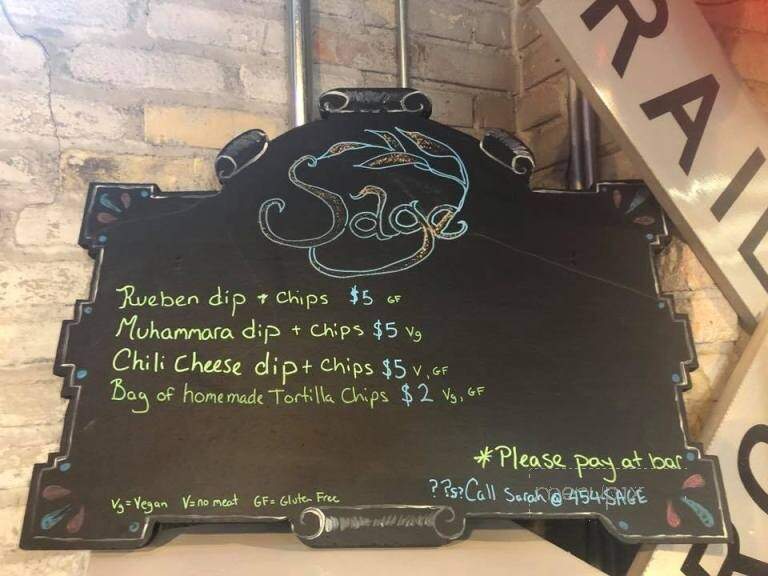 RAIL
Sage
Rueben dip + chips $5 GF
Muhammara dip + chips $5 Vg
Chili Cheese dip + chips $5 V, GF
Bag of homemade Tortilla Chips $2 Vg, GF
*Please pay at bar
??s? Call Sarah @ 454-SAGE
Vg = Vegan V = no meat GF = Gluten Free